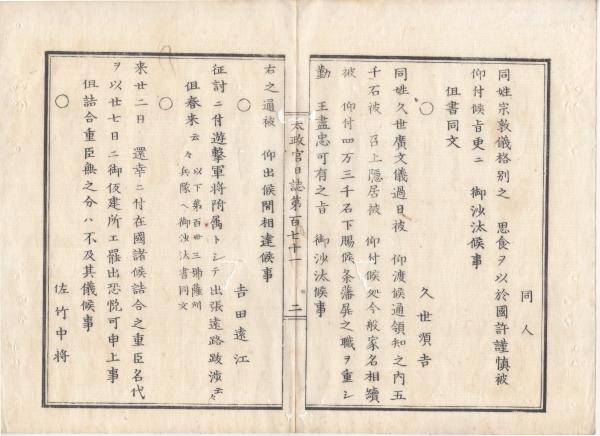 同人
同姓宗敦儀格別之　思食ヲ以於國許謹慎被
仰付候旨更ニ　御沙汰候事
但書同文
○
久世順吉
同姓久世廣文儀過日被　仰渡候通領知之內五
千石被　召上隱居被　仰付候処今般家名相續
被　仰付四万三千石下賜候条藩屏之職ヲ重シ
勤　王盡忠可有之旨　御沙汰候事
太政官日誌第百七十一
二
右之通被　仰出候間相達候事
吉田遠江
征討ニ付遊擊軍將附屬トシテ出張遠路跋涉云々
但春来云々以下第百卅三號薩州
兵隊ヘ御沙汰書同文
○
来廿二日　還幸ニ付在國諸候詰合之重臣名代
ヲ以廿七日ニ御仮建所エ罷出恐悅可申上事
但詰合重臣無之分ハ不及其儀候事
○
佐竹中將